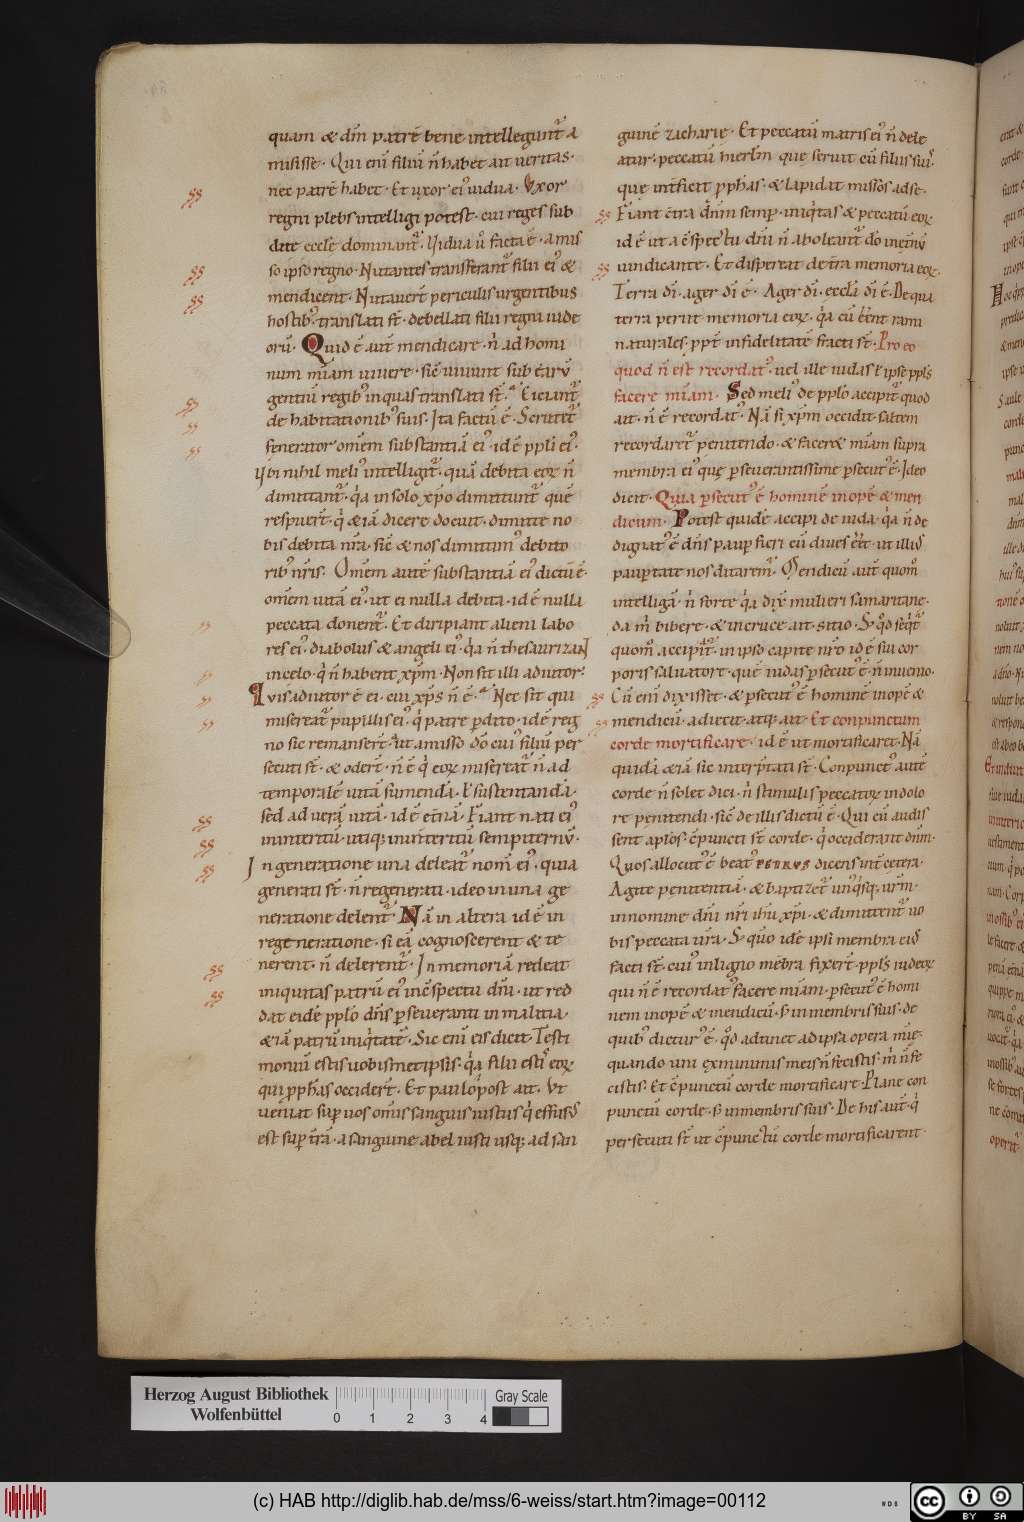 quam & dm̄ patrē bene intellegunt᷑ a
misisse · Qui eni᷑ filiū n̄ habet ait ueritas ·
nec patrē habet · Et uxor ei᷒ uidua · Uxor
regni plebs intelligi potest · cui reges sub
dite eccłe dominant᷑ · Uidua u̓ facta ē · amis
so ipso regno · Nutantes transferant᷑ filii ei᷒ &
mendicent · Nutauer̄t periculis urgentibus
hostib᷒ · translati st̄ · debellati filii regni iude
orū · Quid ē aut̄ mendicare · n̓ ad homi
num mīam uiuere · sic̄ uiuunt sub ēarū
gentiū regib᷒ in quas translati st̄ · Eiciant᷑
de habitationib᷒ suis · Ita factū ē · Scrutet᷑
fenerator om̄em substantiā ei᷒ · id ē pp̄li ei᷒ ·
Ubi nihil meli᷒ intelligit᷑ · quā debita eoꝝ n̄
dimittant᷑ · qa in solo xp̄o dimittunt᷑ quē
respuer̄t · q & iā dicere docuit · dimitte no
bis debita nr̄a · sic̄ & nos dimittim᷒ debito
rib᷒ nr̄is · Om̄em autē substantiā ei᷒ dictū ē ·
om̄em uitā ei᷒ · ut ei nulla debita · id ē nulla
peccata donent᷑ · Et diripiant alieni labo
res ei᷒ · diabolus & angeli ei᷒ · qa n̄ thesaurizant
in celo · q n̄ habent xp̄m · Non sit illi adiutor ·
Quis adiutor ē ei · cui xp̄s n̄ ē · Nec sit qui
misereat᷑ pupillis ei᷒ · q patre perdito · id ē reg
no sic remanser̄t · ut amisso dō cui᷒ filiū per
secuti st̄ · & oder̄t · n̄ ē q eoꝝ misereat᷑ n̄ ad
temporalē uitā sumendā · ł sustentandā ·
sed ad uerā uitā · id ē et̄nā · Fiant nati ei᷒
in interitū · utiq; in interitū sempiternū ·
In generatione una deleat᷑ nom̄ ei᷒ · quia
generati st̄ · n̄ regenerati · ideo in una ge
neratione delent᷑ · Nā in altera id ē in
regeneratione · si eā cognoscerent & te
nerent · n̄ delerent᷑ · In memoriā redeat
iniquitas patrū ei᷒ in c̄spectu dn̄i · ut red
dat eidē pp̄lo dn̄s perseueranti in malitia ·
& iā patrū iniqtatē · Sic eni᷑ eis dicit · Testi
moniū estis uobismetipsis · qa filii estis eoꝝ
qui p̄phas occider̄t · Et paulo post ait · Ut
ueniat sup uos om̄is sanguis iustus q effusus
est sup t̄rā · a sanguine abel iusti usq; ad san
guinē zacharię · Et peccatū matris ei᷒ n̄ dele
atur · peccatū hierl̄m quę seruit cū filiis suis ·
quę interficit p̄phas · & lapidat missos ad se ·
Fiant c̄tra dn̄m semp · iniqtas & peccatū eoꝝ
id ē ut a c̄spectu dn̄i n̄ aboleant᷑ dō in et̄nū
uindicante · Et dispereat de t̄ra memoria eoꝝ ·
Terra dī · ager dī ē · Ager dī · eccła dī ē · De qua
terra periit memoria eoꝝ · qa cū eēnt rami
naturales · ppt̄ infidelitatē fracti st̄ · Pro eo
quod n̄ est recordat᷒ · uel ille iudas ł ipse pp̄ls
facere mīam · Sed meli᷒ de pp̄lo accipit᷑ quod
ait · n̄ ē recordat᷒ · Nā si xp̄m occidit saltem
recordaret᷑ penitendo · & faceret mīam supra
membra ei᷒ quę perseuerantissime persecut᷒ ē · Ideo
dicit · Quia persecut᷒ ē hominē inopē & men
dicum · Potest quidē accipi de iuda · qa n̄ de
dignat᷒ ē dn̄s pauper fieri cū diues eēt · ut illi᷒
paupertate nos ditarem᷑ · Mendicū aut̄ quom̄
intelligā · n̓ forte qa dix̄ mulieri samaritane ·
da m̓ bibere · & in cruce ait · sitio · Sꝫ qd seqt᷑
quom̄ accipit᷑ · in ipso capite nr̄o id ē sui cor
poris saluatore · quē iudas persecut᷒ ē · n̄ inuenio ·
Cū eni᷑ dixisset · & persecut᷒ ē hominē inopē &
mendicū · adiecit atq; ait · Et conpunctum
corde mortificare · id ē ut mortificaret · Nā
quidā & iā sic interp̄tati st̄ · Conpunct᷒ autē
corde n̄ solet dici · n̓ stimulis peccatoꝝ in dolo
re penitendi · sic̄ de illis dictū ē · Qui cū audis
sent apl̄os · c̄puncti st̄ corde · q occiderant dn̄m ·
Quos allocut᷒ ē beat᷒ PETRUS dicens int̄ cetera ·
Agite penitentiā · & baptizet᷑ un᷒qsq; ur̄m ·
in nomine dn̄i nr̄i ih̄u xp̄i · & dimittent᷑ uo
bis peccata ur̄a · Sꝫ quo idē ipsi membra ei᷒
facti st̄ · cui᷒ in ligno mēbra fixer̄t · pp̄ls iudeoꝝ
qui n̄ ē recordat᷒ facere mīam · persecut᷒ ē homi
nem inopē & mendicū · sꝫ in membris suis · de
quib᷒ dictur᷒ ē · qd adtinet ad ipsa opera mīę ·
quando uni ex minimis meis n̄ fecistis · m̓ n̄ fe
cistis · Et c̄punctū corde mortificare · Plane con
punctū corde · sꝫ in membris suis · De his aut̄ · q
persecuti st̄ ut c̄punctū corde mortificarent ·
Herzog August Bibliothek
Wolfenbüttel
0 1 2 3 4
Gray Scale
(c) HAB http://diglib.hab.de/mss/6-weiss/start.htm?image=00112
cc BY SA